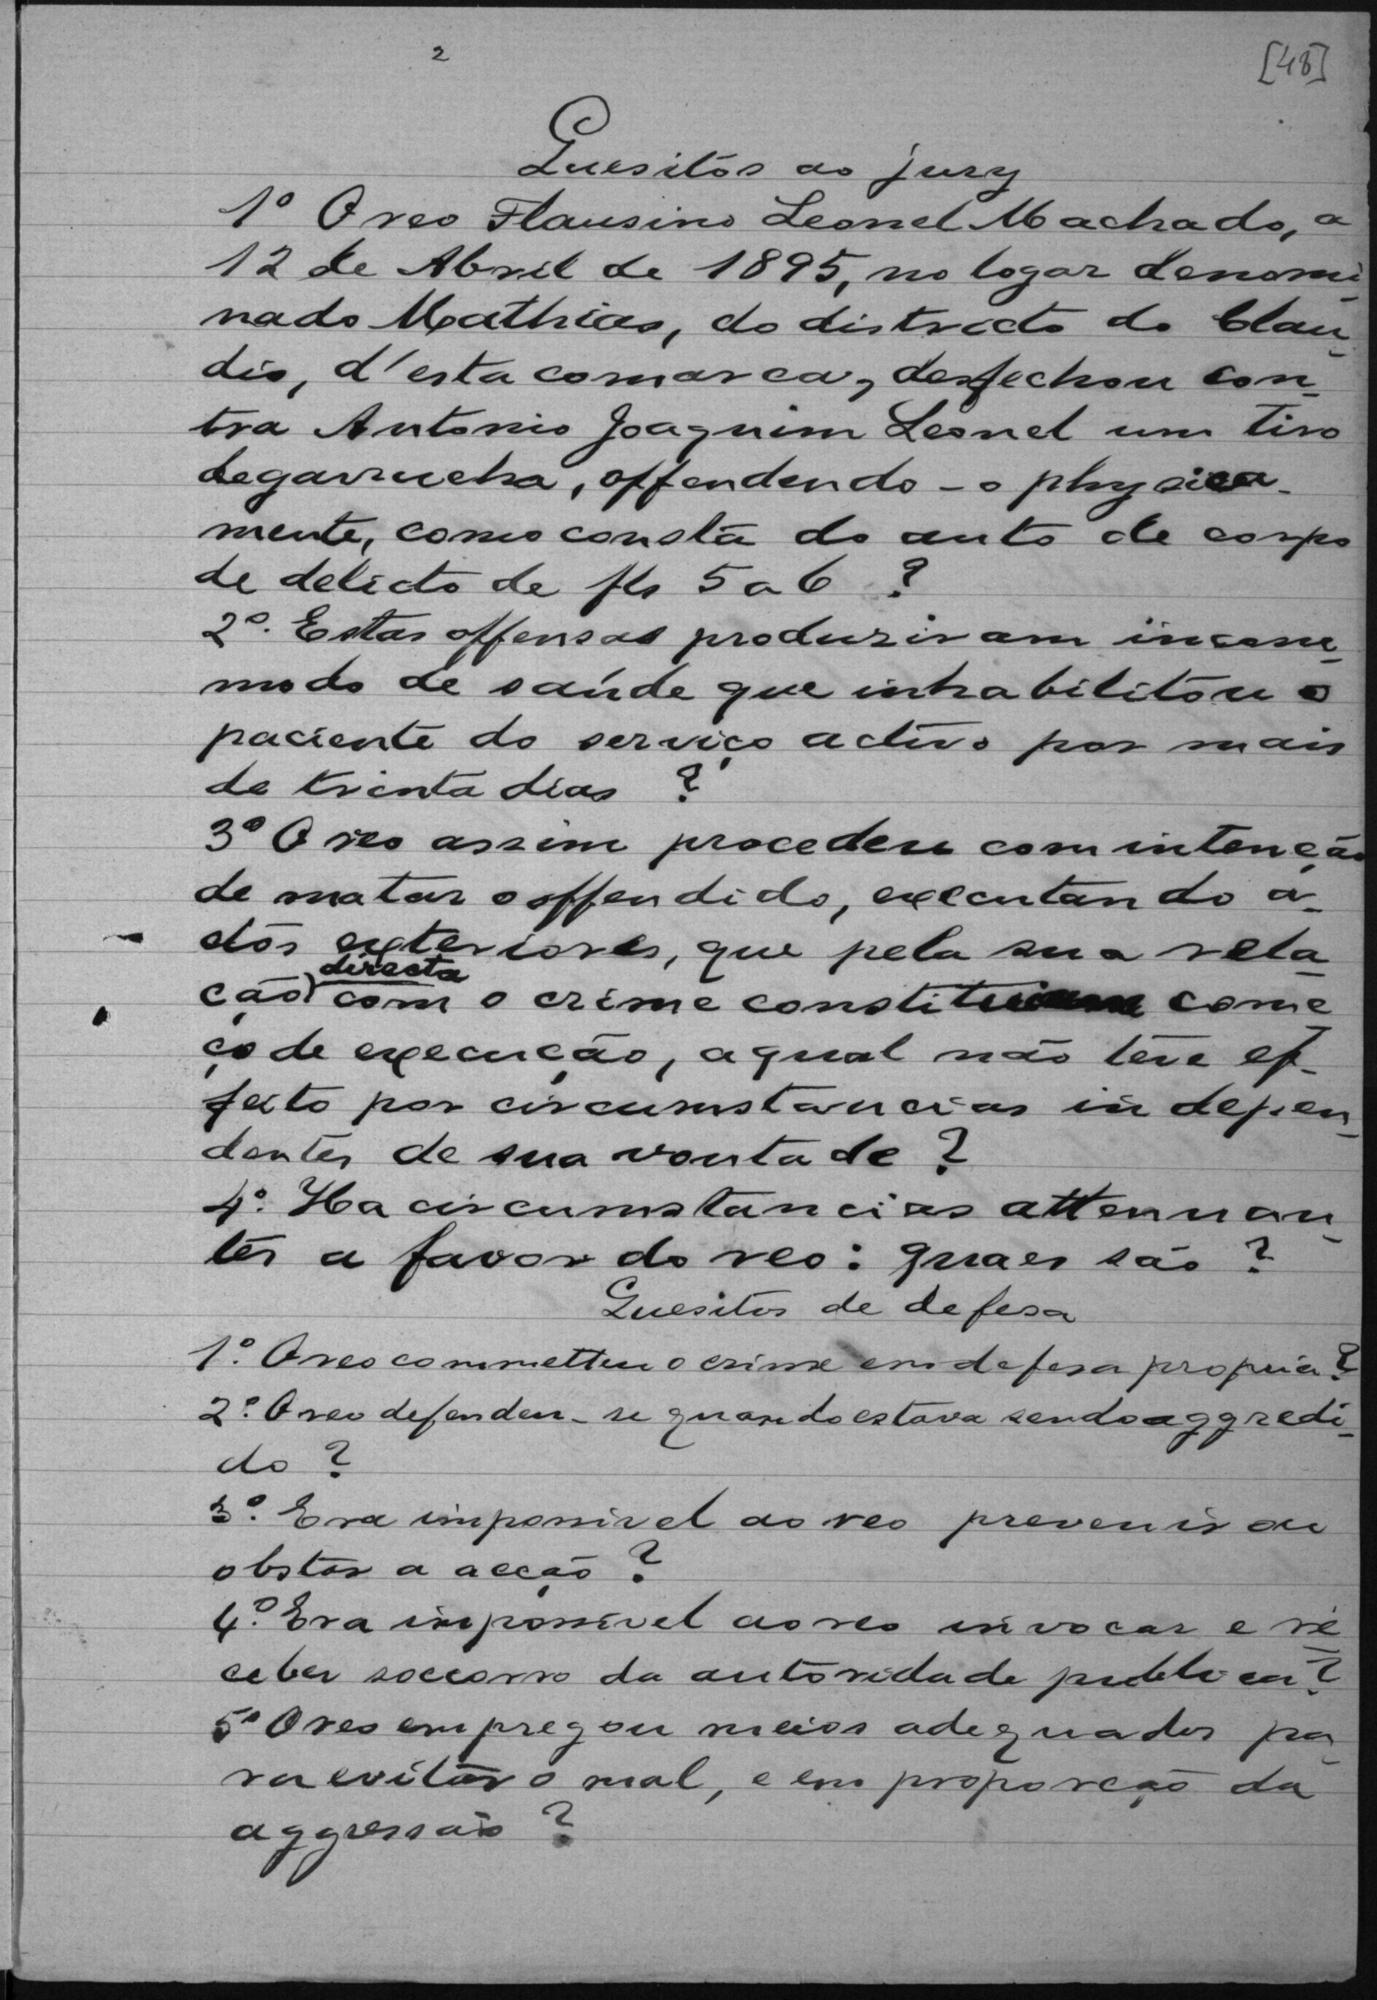 2
[48]
Quesitos ao jury
1º O reo Flausino Leonel Machado, a
12 de Abril de 1895, no logar denomi-
nado Mathias, do districto do Clau-
dio, d'esta comarca, desfechou con-
tra Antonio Joaquim Leonel um tiro
de garrucha, offendendo-o physica-
mente, como consta do auto de corpo
de delicto de fls 5 a 6 ?
2º. Estas offensas produziram incom-
modo de saúde que inhabilitou o
paciente do serviço activo por mais
de trinta dias ?
3º O reo assim procedeu com intenção
de matar o offendido, executando a-
ctos exteriores, que pela sua rela-
ção directa com o crime constituem come
ço de execução, a qual não teve ef-
feito por circumstancias indepen-
dentes de sua vontade ?
4º. Ha circumstancias attenuan-
tes a favor do reo: quaes são ?
Quesitos de defesa
1º. O reo commetteu o crime em defesa propria ?
2º. O reo defendeu-se quando estava sendo aggredi-
do ?
3º. Era impossivel ao reo prevenir ou
obstar a acção ?
4º. Era impossivel ao reo invocar e re-
ceber soccorro da autoridade publica ?
5º O reo empregou meios adequados pa-
ra evitar o mal, e em proporção da
aggressão ?